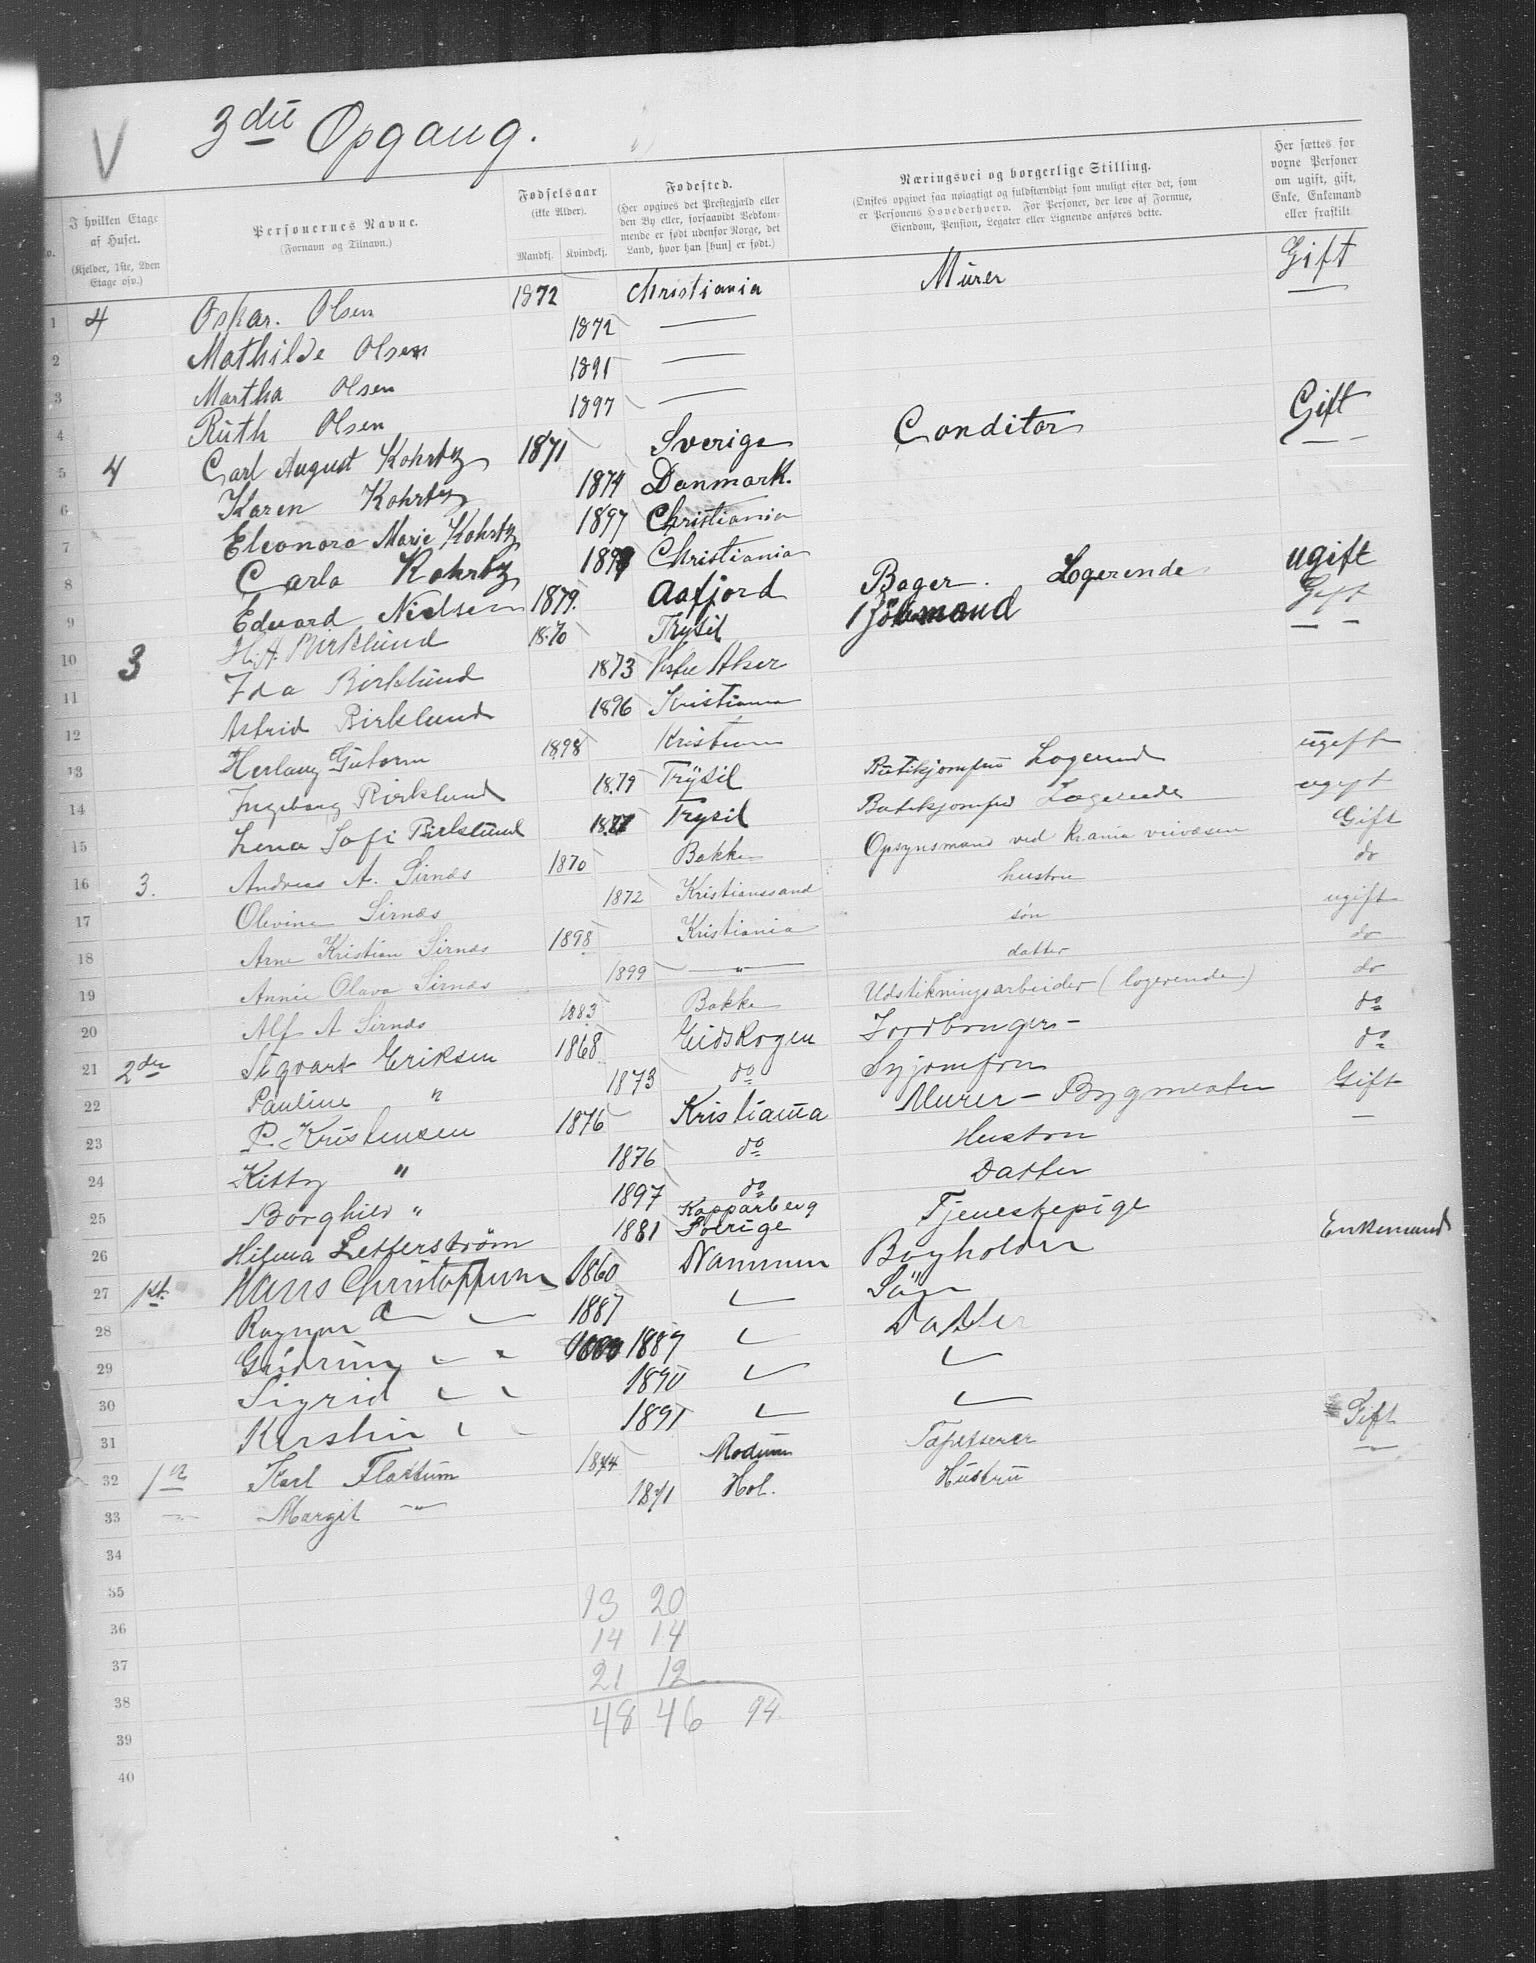 V 3die Opgang.
No.
I hvilken Etage af Huset. (Kjelder, 1ste, 2den Etage osv.)
Personernes Navne. (Fornavn og Tilnavn.)
Fødselsaar (ikke Alder). Mandkj. Kvindekj.
Fødested. (Her opgives det Prestegjæld eller den By eller, forsaavidt Vedkommende er født udenfor Norge, det Land, hvor han [hun] er født.)
Næringsvei og borgerlige Stilling. (Ønskes opgivet saa nøiagtigt og fuldstændigt som muligt efter det, som er Personens Hovederhverv. For Personer, der leve af Formue, Eiendom, Pension, Legater eller Lignende anføres dette.
Her sættes for voxne Personer om ugift, gift, Enke, Enkemand eller fraskilt
1 4 Oskar. Olsen 1872 Christiania Murer Gift
2 Mathilde Olsen 1872 — —
3 Martha Olsen 1891 —
4 Ruth Olsen 1897 —
5 4 Carl August Kohrtz 1871 Sverige Conditor Gift
6 Karen Kohrtz 1874 Danmark. — —
7 Eleonora Marie Kohrtz 1897 Christiania
8 Carla Kohrtz 1899 Christiania
9 Edvard Nielsen 1879. Aafjord Bager. Logerende ugift
10 3 H. A. Birklund 1870 Trysil Gift
11 Ida Birklund 1873 Vestre Aker — —
12 Astrid Birklund 1896 Kristiania
13 Herlaug Gutorm 1898 Kristiania
14 Ingeborg Birklund 1879 Trysil Butikjomfru Logerend ugift
15 Lena Sofi Birklund 1877 Trysil Butikjomfru Logerende ugift
16 3. Andreas A. Sirnæs 1870 Bakke Opsynsmand ved Krania veivæsen Gift
17 Olevine Sirnæs 1872 Kristianssand hustru do
18 Arne Kristian Sirnæs 1898 Kristiania søn ugift
19 Annie Olava Sirnæs 1899 — " — datter do
20 Alf A Sirnæs 1883 Bakke Udstikningsarbeider (logerende) do
21 2den Sigvart Eriksen 1868 Eidskogen Jordbruger - do
22 Pauline " 1873 do Syjomfru do
23 P. Kristensen 1876 Kristiania Murer - Bygmester Gift
24 Kitty " 1876 do Hustru —
25 Borghild " 1897 do Datter
26 Hilma Letterström 1881 Kopparberg Sverige Tjenestepige
27 1st. Hans Christophersen 1860 Drammen Bogholder Enkemand
28 Ragnar C 1887 " Sön
29 Gudrun " " 1889 " Datter
30 Sigrid " " 1890 " "
31 Kirstin " " 1891 " "
32 1ste Karl Flaktum 1874 Modum Tapetserer Gift
33 — Margit — " 1871 Hol. Hustru —
34
35 13 20
36 14 14
37 21 12
38 48 46 94
39
40